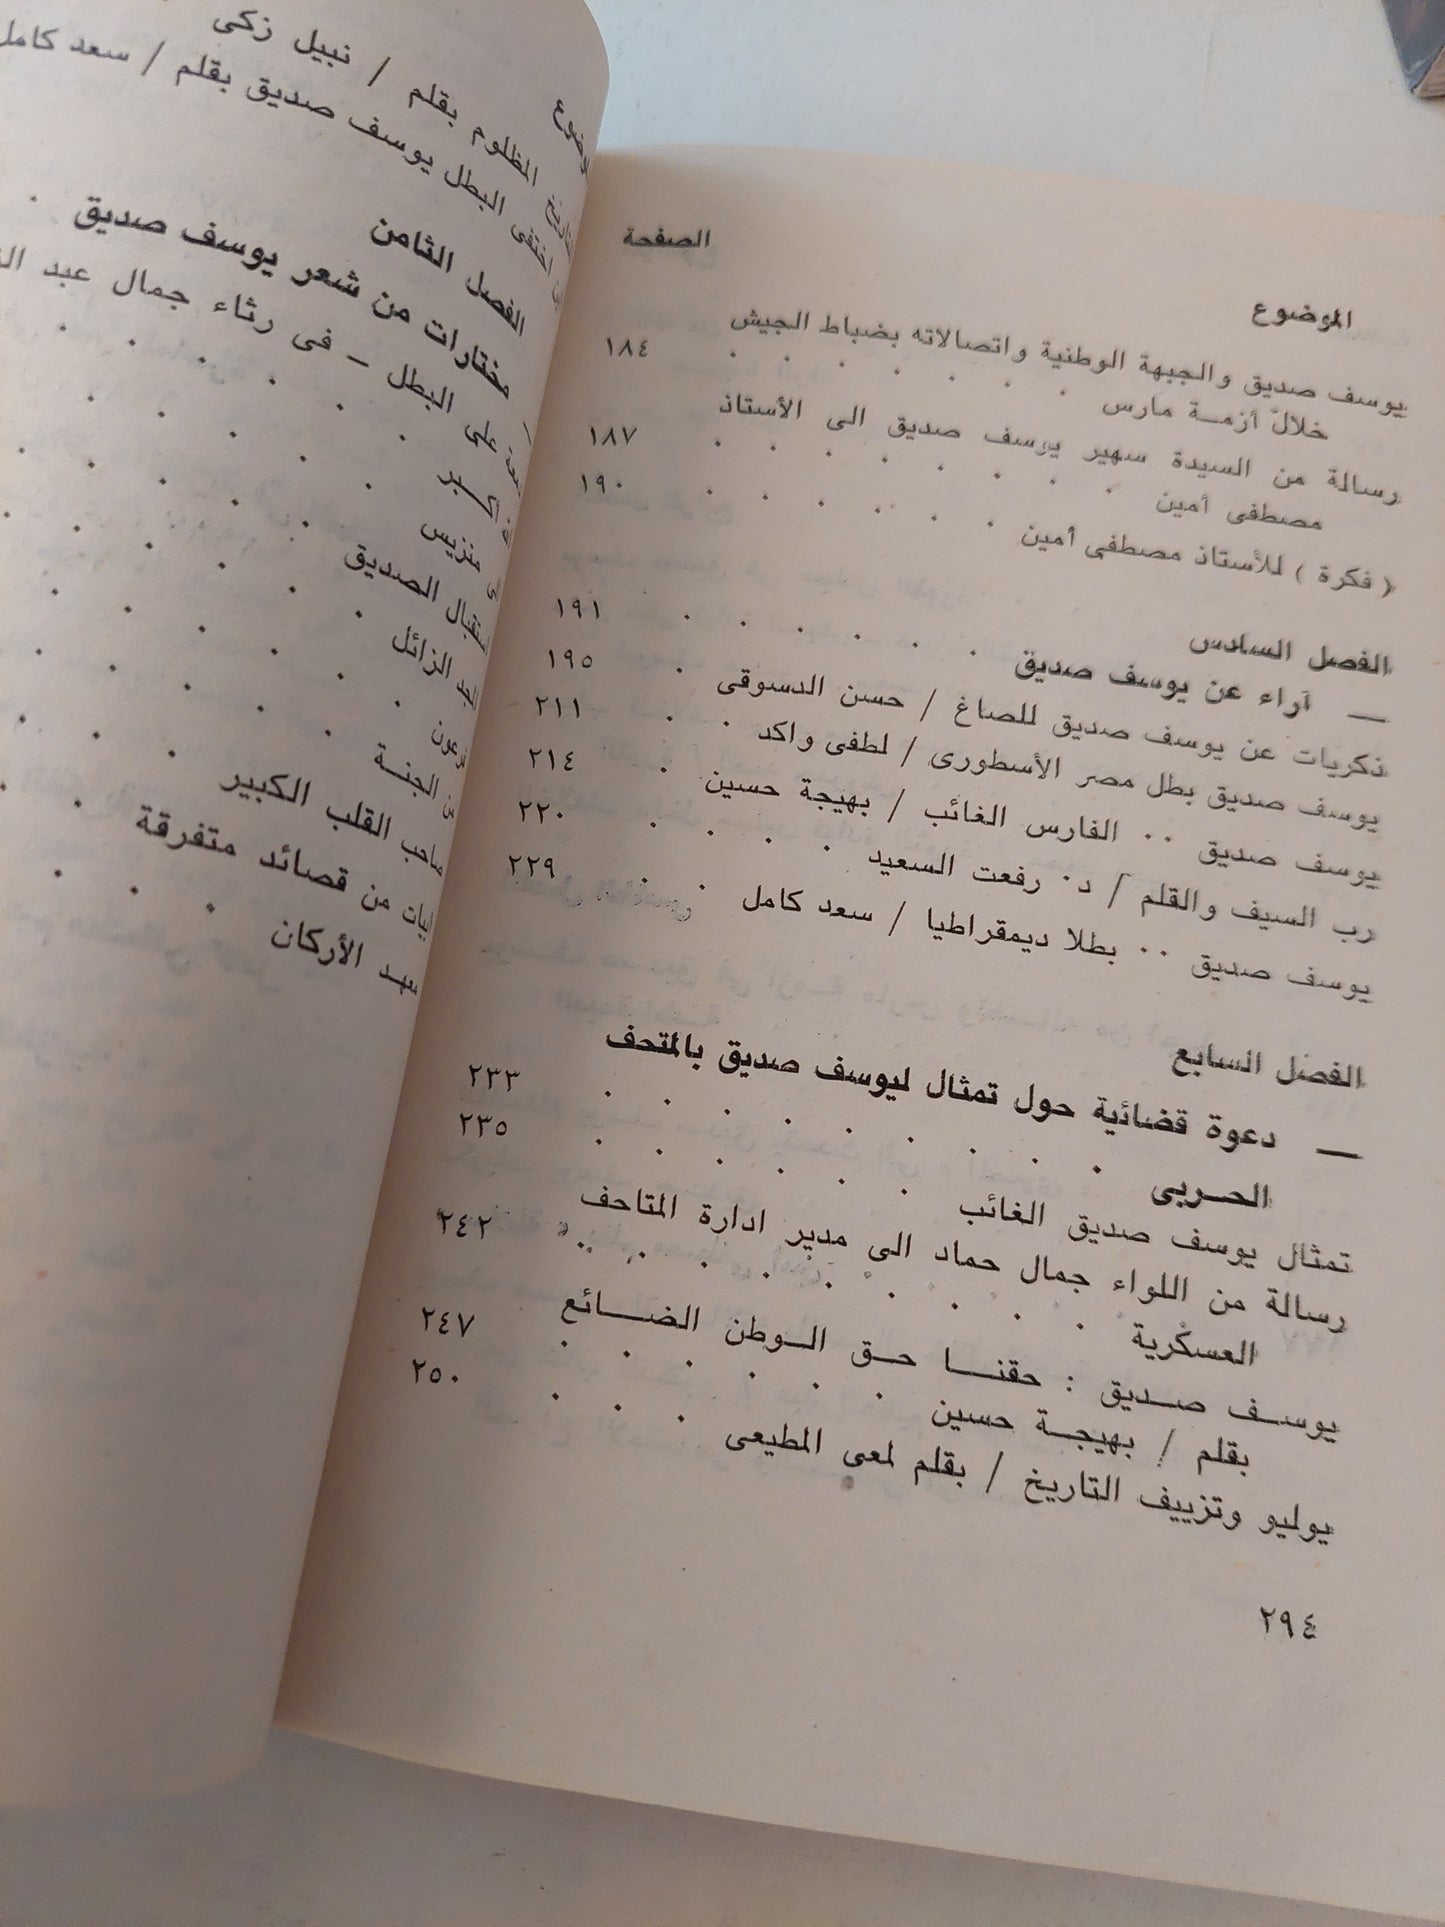 الموضوع
الصفحة
يوسف صديق والجبهة الوطنية واتصالاته بضباط الجيش
خلال أزمــة مارس . . . . . . . ١٨٤
رسالة من السيدة سهير يوسف صديق الى الأستاذ
مصطفى أمين . . . . . . . ١٨٧
( فكرة ) للأستاذ مصطفى أمين . . . . . . ١٩٠
الفصل السادس
— آراء عن يوسف صديق . . . . . . ١٩١
ذكريات عن يوسف صديق للصاغ / حسن الدسوقى . ١٩٥
يوسف صديق بطل مصر الأسطورى / لطفى واكد . . ٢١١
يوسف صديق .. الفارس الغائب / بهيجة حسين . ٢١٤
رب السيف والقلم / د. رفعت السعيد . . . . ٢٢٠
يوسف صديق .. بطلا ديمقراطيا / سعد كامل . . ٢٢٩
الفصل السابع
— دعوة قضائية حول تمثال ليوسف صديق بالمتحف
الحــربى . . . . . . . . . ٢٣٣
تمثال يوسف صديق الغائب . . . . . . ٢٣٥
رسالة من اللواء جمال حماد الى مدير ادارة المتاحف
العسكرية . . . . . . . . . ٢٤٢
يوســف صــديق : حقنــــا حــق الــوطن الضــــائع
بقلم / بهيجــة حسين . . . . . . ٢٤٧
يوليو وتزييف التاريخ / بقلم لمعى المطيعى . . . ٢٥٠
٢٩٤
المظلوم بقلم / نبيل زكى
اختفى البطل يوسف صديق بقلم / سعد كامل
الفصل الثامن
مختارات من شعر يوسف صديق .
على البطل – فى رثاء جمال عبد
منزيس
الصديق
الزائل
الجنــة
القلب الكبير
من قصائد متفرقة
الأركان